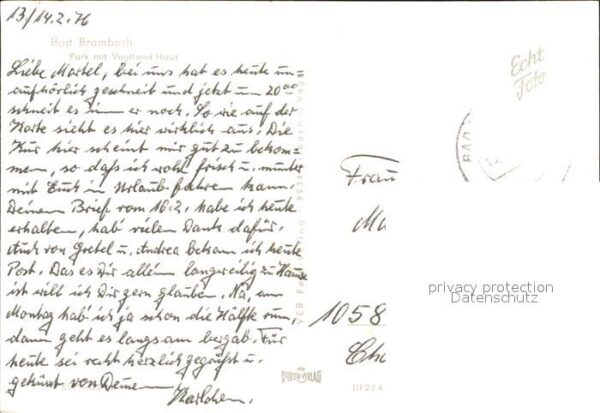 13/14.2.76
Bad Brambach
Park mit Vogtland-Haus
Liebe Martel, bei uns hat es heute un-
aufhörlich geschneit und jetzt um 20⁰⁰
schneit es immer noch. So wie auf der
Karte sieht es hier wirklich aus. Die
Kur hier scheint mir gut zu bekom-
men, so daß ich wohl frisch u. munter
mit Euch in Urlaub fahren kann.
Deinen Brief vom 10.2. habe ich heute
erhalten, hab' vielen Dank dafür.
Auch von Gretel u. Andrea bekam ich heute
Post. Das es Dir allein langweilig zu Hause
ist will ich Dir gern glauben. Na, am
Montag hab' ich ja schon die Hälfte rum,
dann geht es langsam bergab. Für
heute sei recht herzlich gegrüßt u.
geküßt von Deinem
Karlchen.
Echt
Foto
BAD
Frau
Ma
1058
privacy protection
Datenschutz